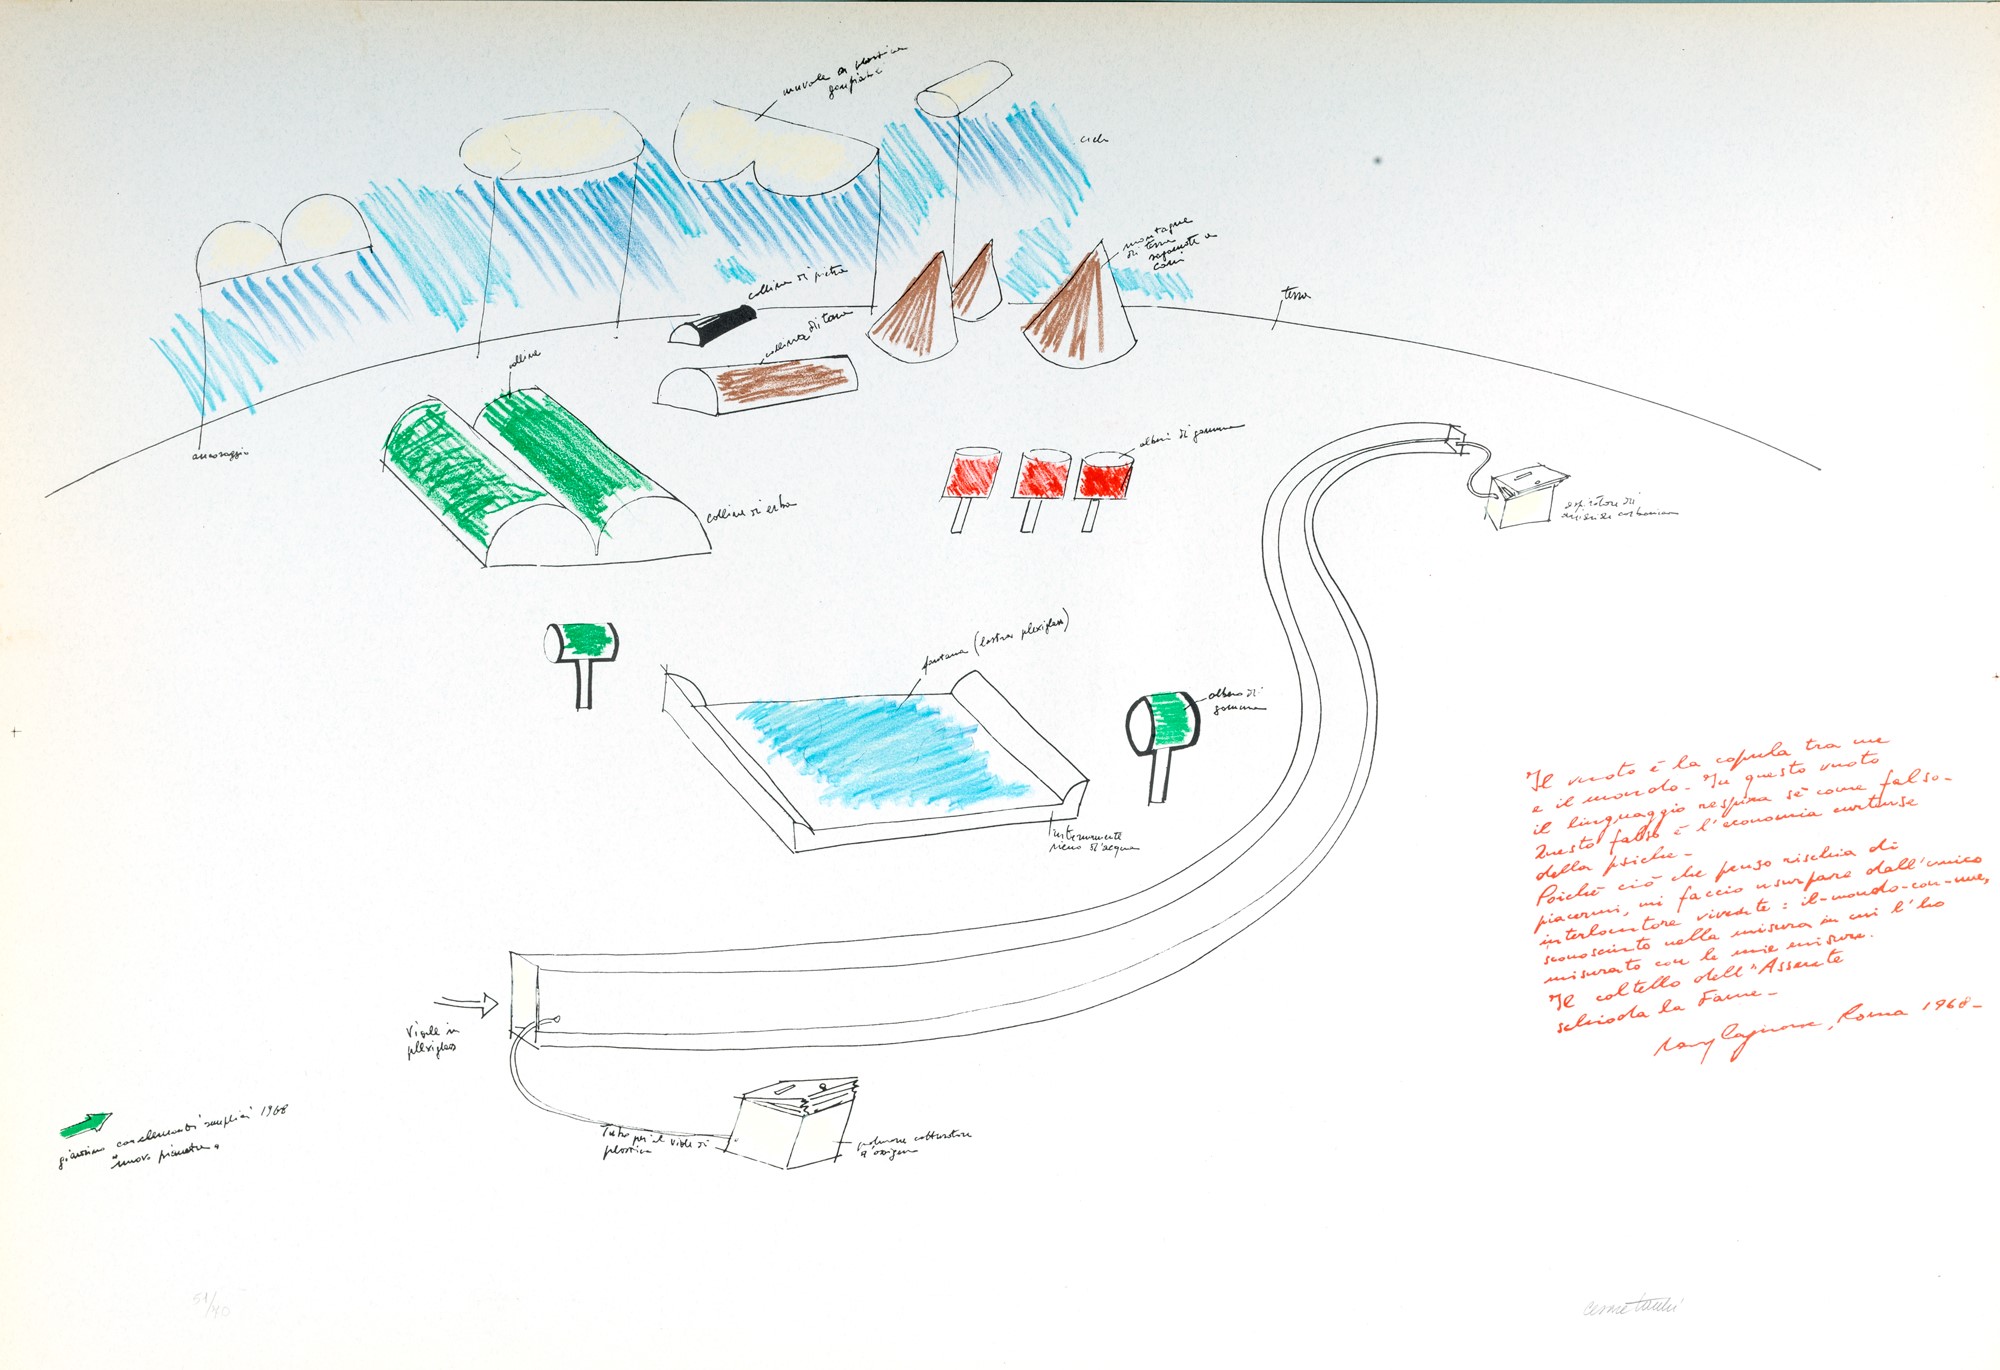 nuvole di plastica
gonfiabi
cielo
montagne
di terra
sagomate a
coni
terra
collina di pietra
collina di terra
colline
ancoraggio
colline di erba
alberi di gomma
aspiratore di
anidride carbonica
fontana (lastra plexiglass)
albero di
gomma
internamente
pieno d'acqua
Viale in
plexiglass
Tubo per il viale di
plastica
polmone
d'ossigeno
giardino con elementi semplici 1968
"nuovo pianeta"
Il vuoto è la copula tra me
e il mondo - In questo vuoto
il linguaggio respira sè come falso -
Questo falso è l'economia curtense
della psiche -
Poichè ciò che penso rischia di
piacermi, mi faccio usurpare dall'unico
interlocutore vivente: il-mondo-con-me,
sconosciuto nella misura in cui l'ho
misurato con le mie misure.
Il coltello dell'Assente
schioda la Fame -
, Roma 1968 -
51/70
Cesare Tacchi